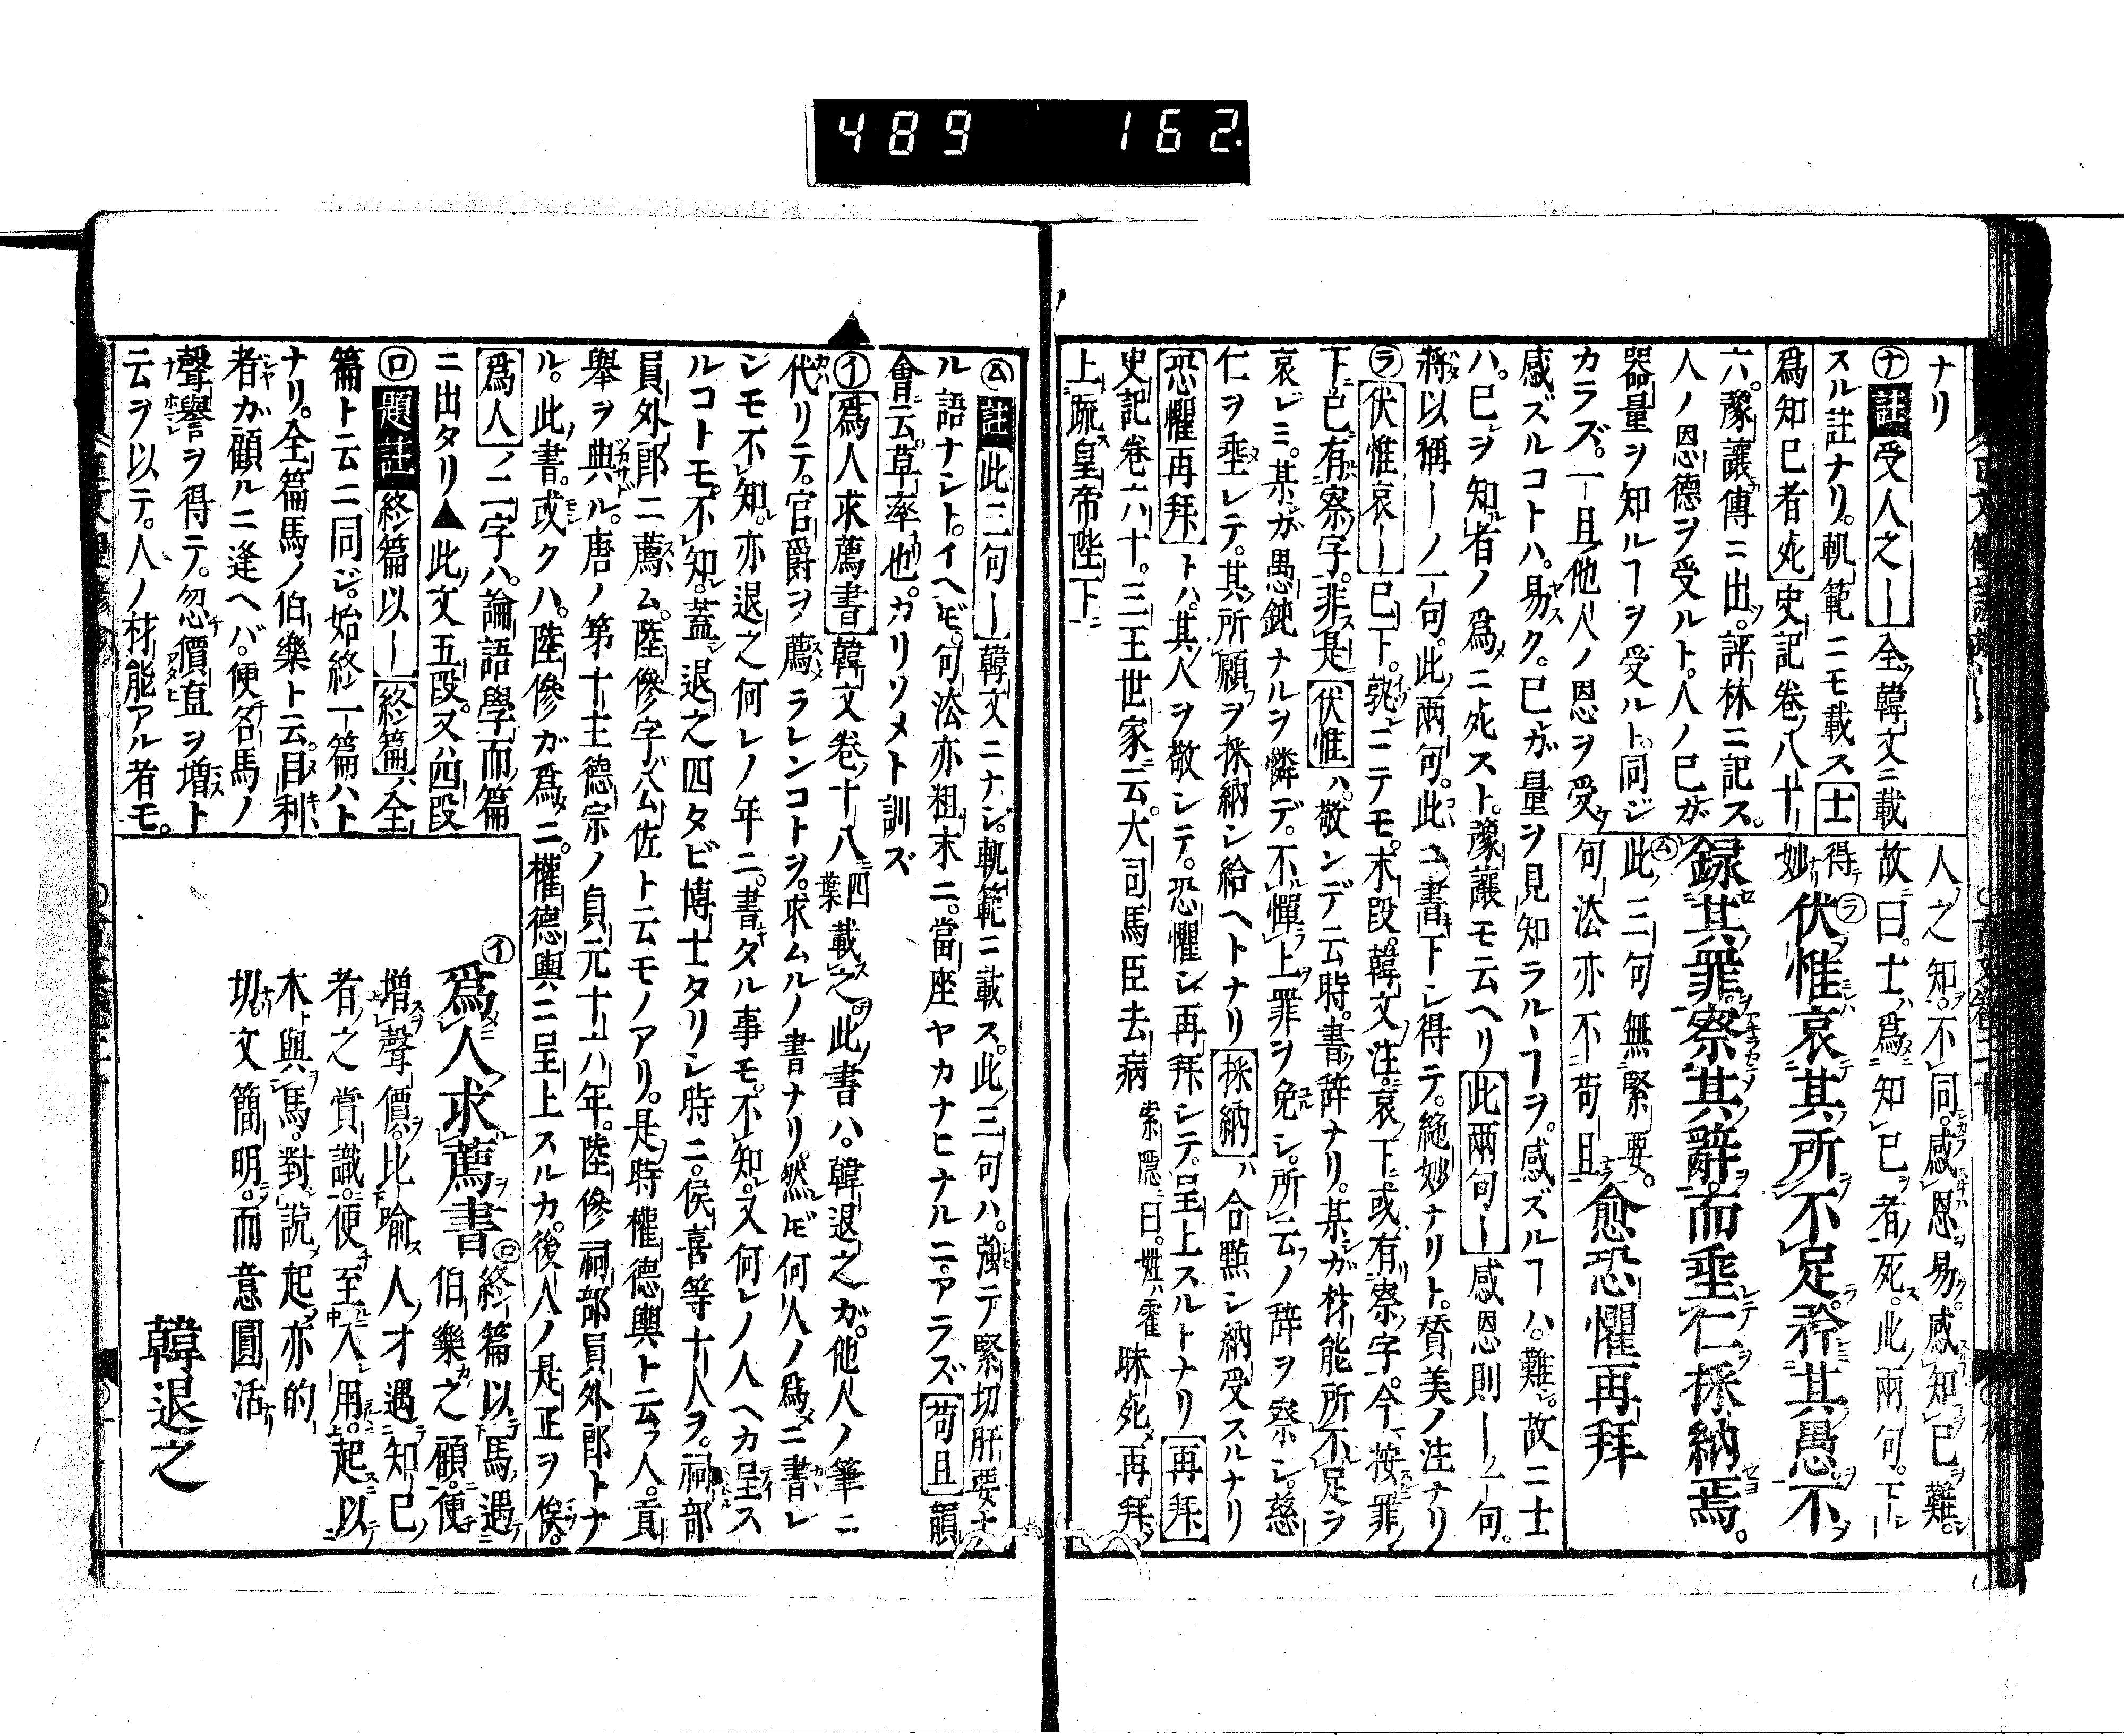 489 162
ナリ
㋤註受人之―全韓文ニ載
スル註ナリ。軌範ニモ載ス士
爲知己者死史記卷八十
六。豫讓傳ニ出。評林ニ記ス
人ノ恩德ヲ受ルト。人ノ已ガ
器量ヲ知ルヿヲ受ルト。同ジ
カラズ。一旦他人ノ恩ヲ受
人之知。不同。感恩易。感知已難。
故曰。士爲知已者死。此兩句。下
得妙㋶伏惟哀其所不足。矜其愚。不
錄其罪。察其辭。而垂仁採納焉。
㋰此三句無緊要。
句法亦不苟且愈恐懼再拜
感ズルコトハ。易ク。已ガ量ヲ見知ラルヽヿヲ。感ズルヿハ。難。故ニ士
ハ。已ヲ知者ノ爲ニ死スト。豫讓モ云ヘリ此兩句―感恩則―ノ一句。
將以稱―ノ一句。此兩句。此ニ書下シ得テ。絶妙ナリト。賛美ノ注ナリ
㋶伏惟哀―已下。孰ニテモ。末段。韓文注。哀下。或有察字。今按罪
下。已有察字。非是伏惟ハ。敬ンデ云時。書辞ナリ。某ガ材能所不足ヲ
哀レミ。某ガ愚鈍ナルヲ憐デ。不憚上罪ヲ免シ。所云ノ辞ヲ察シ。慈
仁ヲ垂レテ。其所願ヲ採納シ給ヘトナリ採納ハ合點シ納受スルナリ
恐懼再拜トハ。其人ヲ敬シテ。恐懼シ再拜シテ。呈上スルトナリ再拜
史記卷六十。三王世家云。大司馬臣去病索隱曰。姓霍昧死再拜
上疏皇帝陛下
㋰註此三句―韓文ニナシ。軌範ニ載ス。此三句ハ。強テ緊切肝要ナ
ル語ナシト。イヘ𪜈。句法亦粗末ニ。當座ヤカナヒナルニ。アラズ苟且韻
會云。草率也。カリソメト訓ズ
㋑爲人求薦書韓文卷十八四葉載之。此書ハ。韓退之ガ。他人ノ筆ニ
代リテ。官爵ヲ薦ラレンコトヲ。求ムルノ書ナリ。然𪜈何人ノ爲ニ書レ
シモ不知。亦退之何レノ年ニ。書タル事モ。不知。又何レノ人ヘカ呈ス
ルコトモ。不知。蓋退之四タビ博士タリシ時ニ。侯喜等十人ヲ。祠部
員外郎ニ薦ム。陸傪字ハ公佐ト云モノアリ。是時權德輿ト云フ人。貢
擧ヲ典ル。唐ノ第十主德宗ノ貞元十八年。陸傪祠部員外郎トナ
ル。此書。或クハ。陸傪ガ爲ニ。權德輿ニ呈上スルカ。後人ノ是正ヲ俟。
爲人ノ二字ハ。論語學而篇
ニ出タリ▲此文五段。又ハ四段
㋺題註終篇以―終篇ハ全
篇ト云ニ同ジ。始終一篇ハト
ナリ。全篇馬ノ伯樂ト云。目利
者ガ顧ルニ逢ヘバ。便名馬ノ
聲譽ヲ得テ。忽價直ヲ増ト
云ヲ以テ。人ノ材能アル者モ。
㋑爲人求薦書㋺終篇以馬遇
伯樂之顧。便
増聲價。比喩人才遇知己
者之賞識。便至入用。起以
木與馬。對說起。亦的
切。文簡明。而意圓活
韓退之